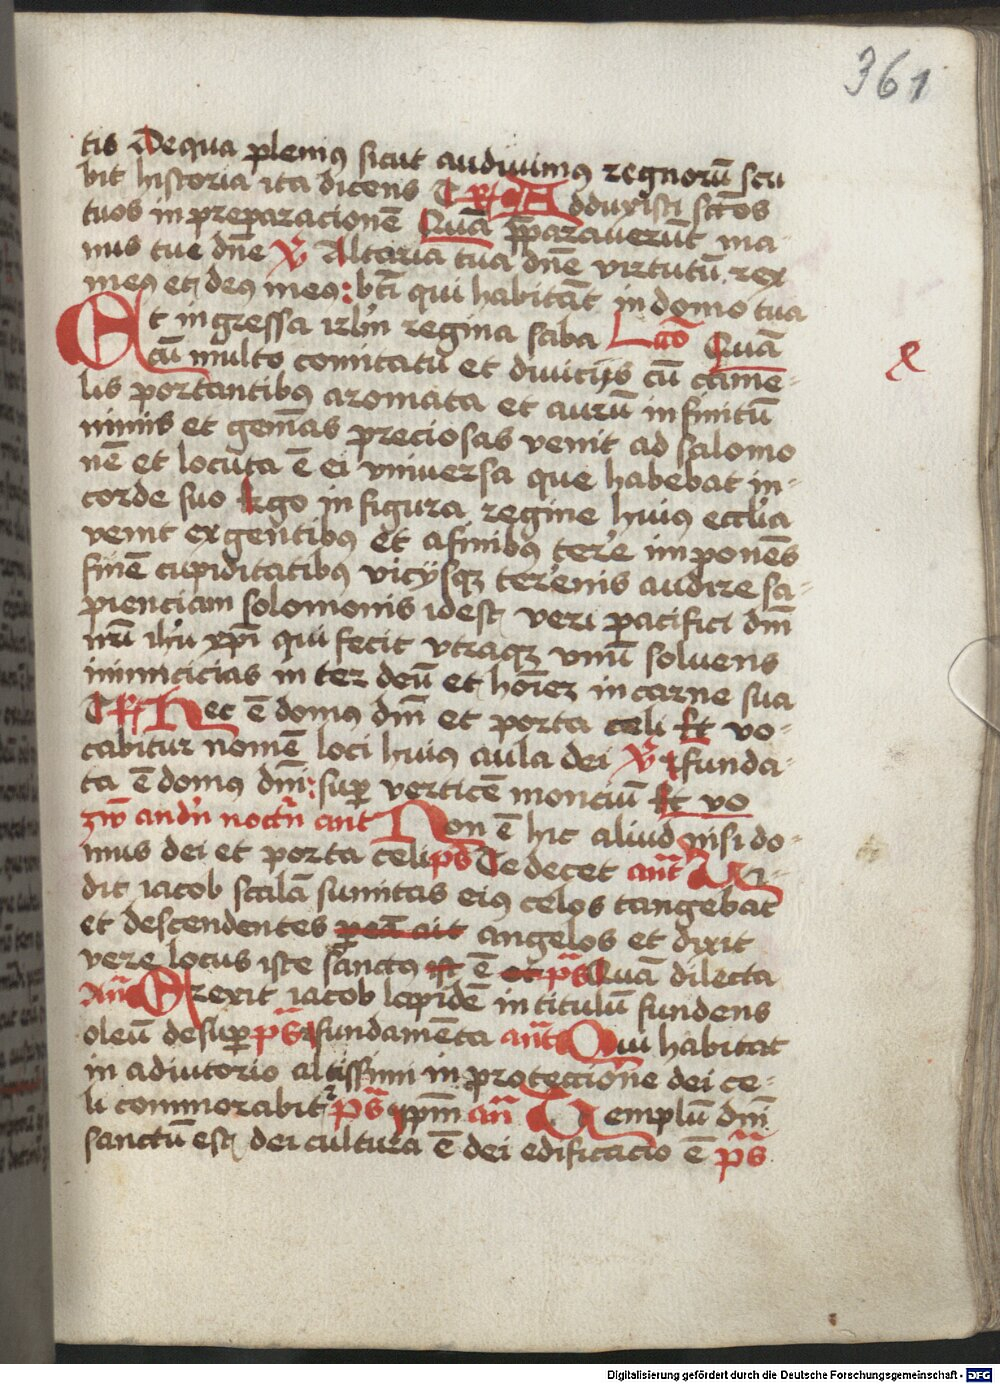 361
tis De qua pleniꝰ sicut audiuimꝰ regnorū scri
bit historia ita dicens R̸ Adduxisti sctōs
tuos in preparacionē Quā p̄parauerūt ma-
nus tue dn̄e V̸ Altaria tua dn̄e virtutū rex
meꝰ et deꝰ meꝰ : bt̄i qui habitāt in domo tua
Et ingressa irl̄m regina saba Lc̄o Quā
cū multo comitatu et diuicijs cū came-
lis portantibꝰ aromata et aurū infinitū
nimis et gem̄as preciosas venit ad salomo
nē et locuta ē ei vniuersa que habebat in-
corde suo Ergo in figura regine huiꝰ eccl̄ia
venit ex gentibꝰ et a finibꝰ terre imponēs
finē cupiditatibꝰ vicijsqꝫ terrenis audire sa-
pienciam solomonis idest veri pacifici dn̄i
nr̄i ih̄u xp̄i qui fecit vtraqꝫ vnū soluens
inimicicias inter deū et hoīez in carne sua
R̸ Hec ē domꝰ dn̄i et porta celi Et vo-
cabitur nomē loci huiꝰ aula dei V̸ funda-
ta ē domꝰ dn̄i : suꝑ verticē monciū Et vo
zw andn̄ noct̄n ant Non ē hic aliud nisi do-
mus dei et porta celi ps̄ Te decet ant̄ Vi-
dit iacob scalā sumitas eiꝰ celos tangebat
et descendentes angelos et dixit
vere locus iste sanctꝰ ē ps̄ Quā dilecta
An̄ Erexit iacob lapidē in titulū fundens
oleū desuꝑ ps̄ fundamēta ant̄ Qui habitat
in adiutorio altissimi in protectione dei ce-
li commorabit̄ ps̄ ip̄m an̄ Templū dn̄i
sanctū est dei cultura ē dei edificacio ē ps̄
Digitalisierung gefördert durch die Deutsche Forschungsgemeinschaft - DFG